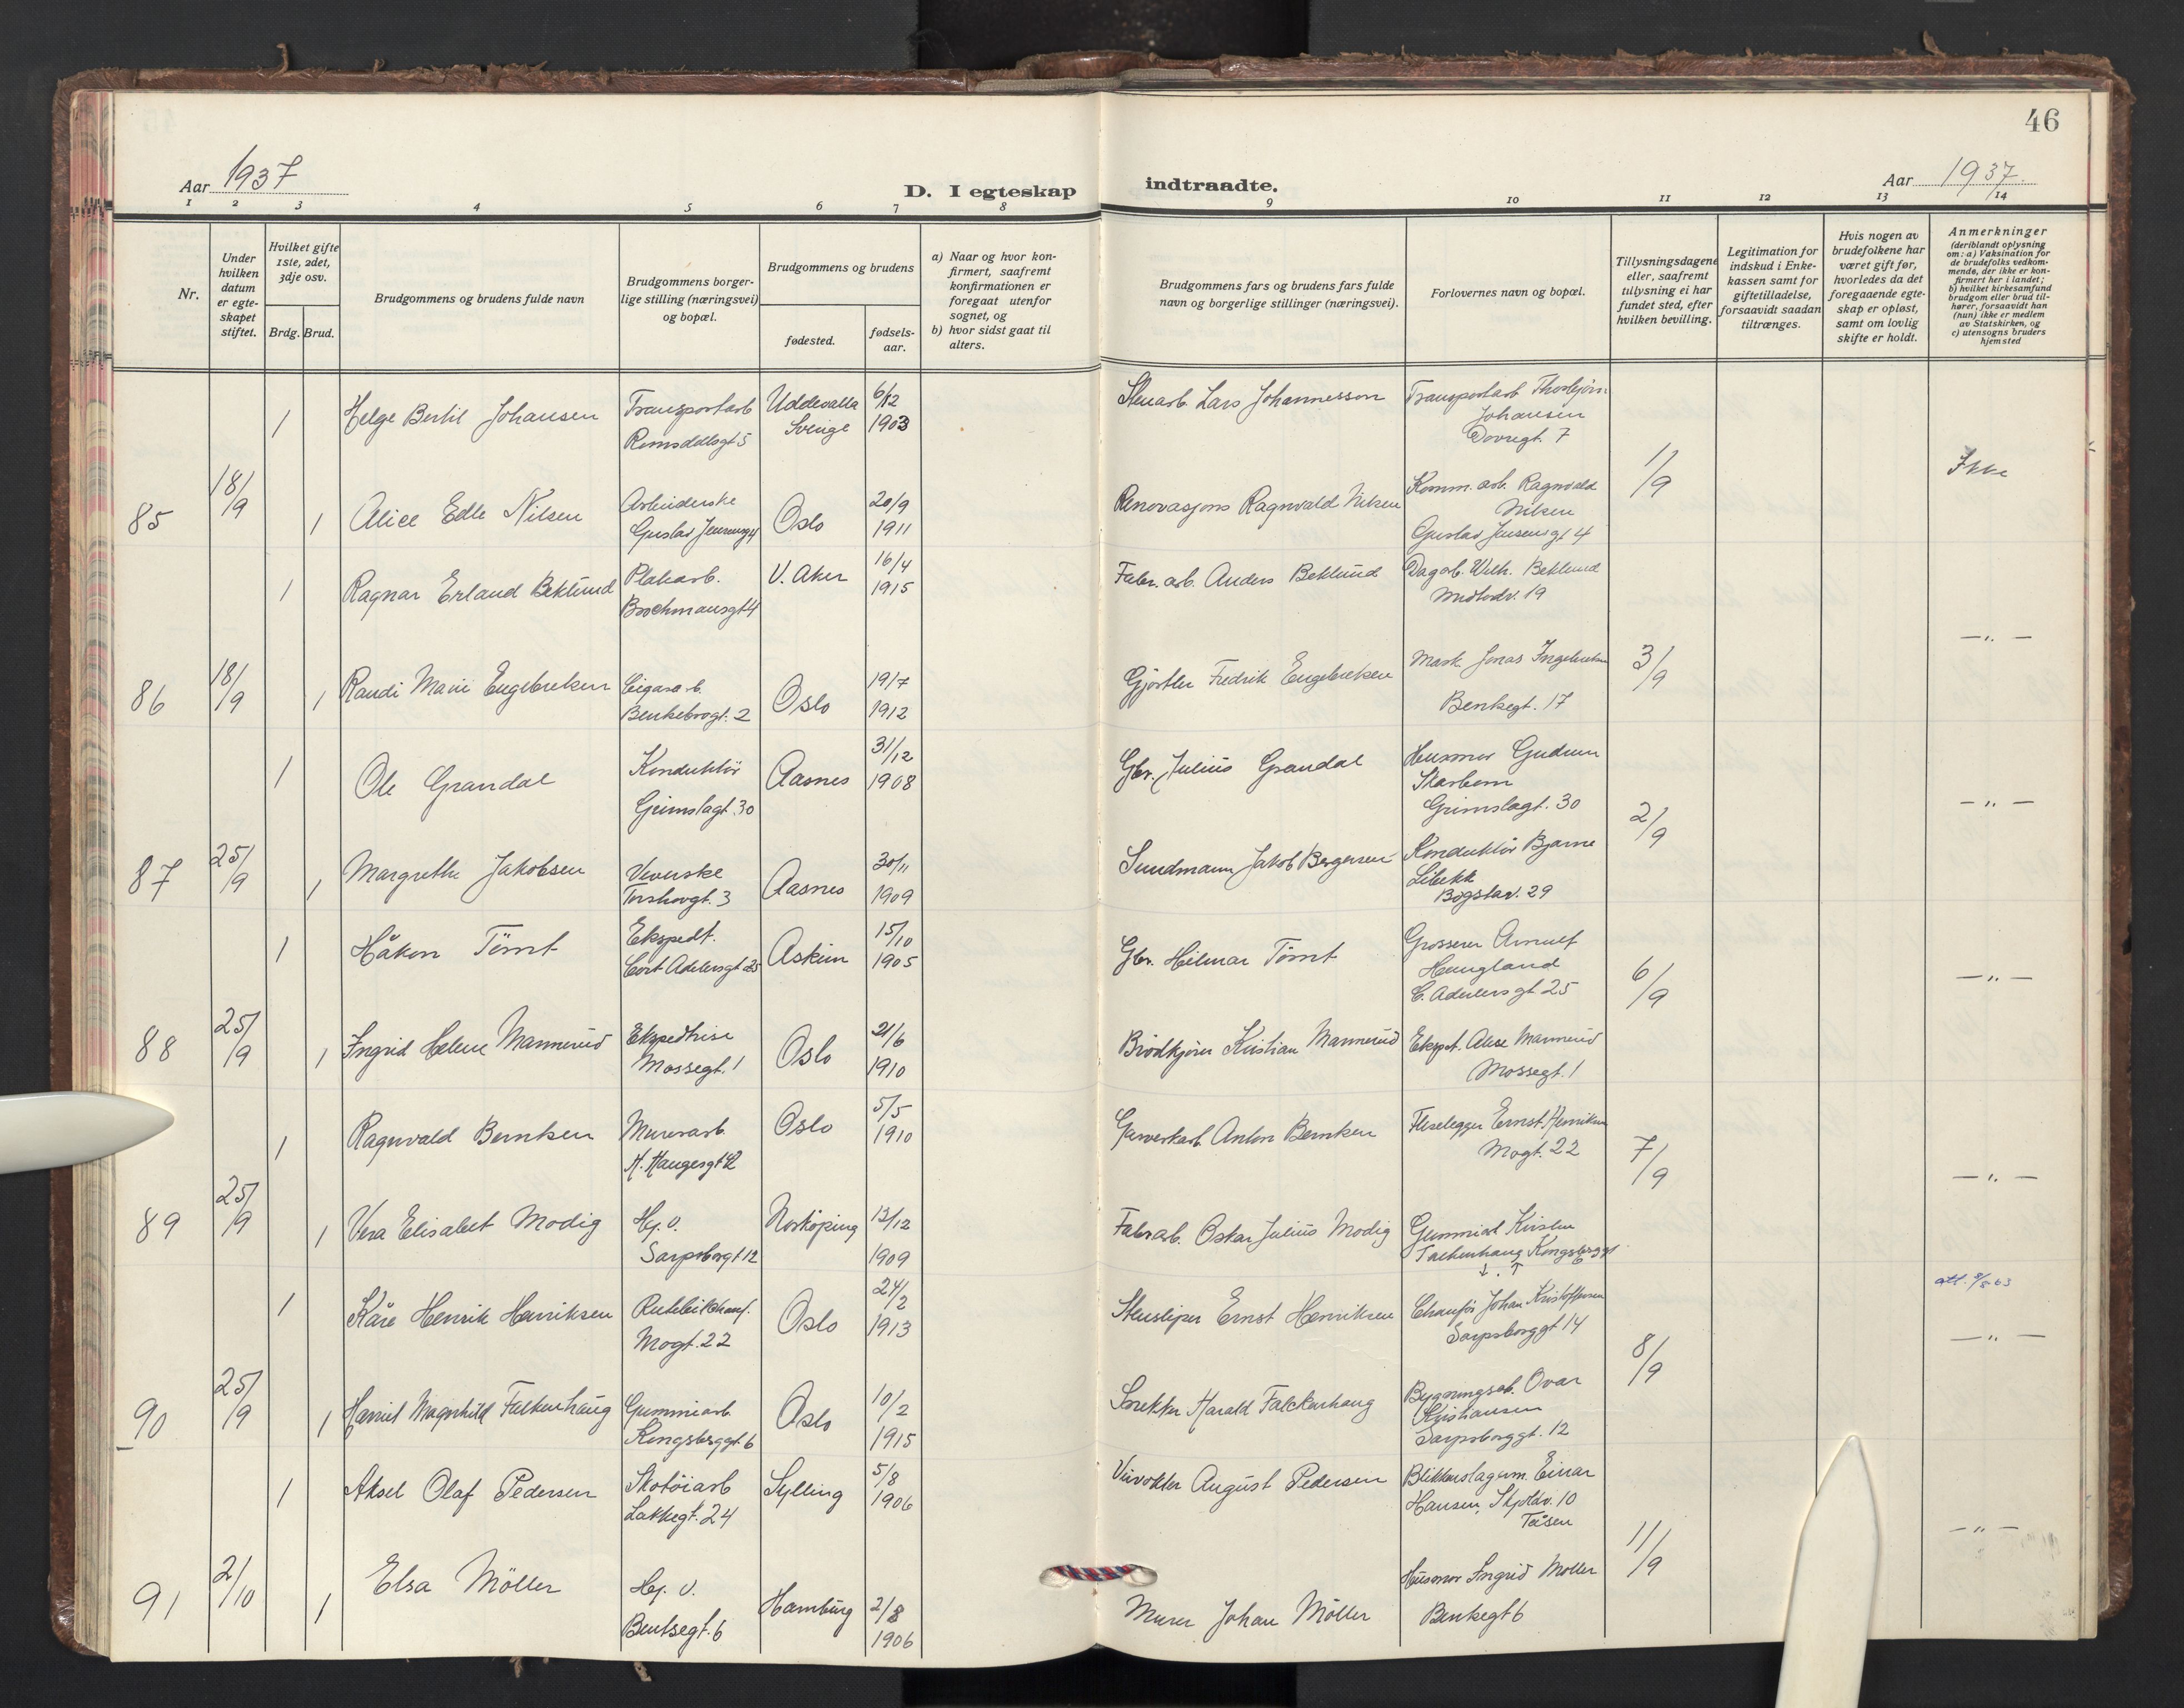 46
Aar 1937
D. I egteskap indtraadte.
Aar 1937.
1 2 3 4 5 6 7 8 9 10 11 12 13 14
Nr.
Under hvilken datum er egteskapet stiftet.
Hvilket gifte 1ste, 2det, 3dje osv.
Brdg. Brud.
Brudgommens og brudens fulde navn
Brudgommens borgerlige stilling (næringsvei) og bopæl.
Brudgommens og brudens
fødested.
fødselsaar.
a) Naar og hvor konfirmert, saafremt konfirmationen er foregaat utenfor sognet, og
b) hvor sidst gaat til alters.
Brudgommens fars og brudens fars fulde navn og borgerlige stillinger (næringsvei).
Forlovernes navn og bopæl.
Tillysningsdagene eller, saafremt tillysning ei har fundet sted, efter hvilken bevilling.
Legitimation for indskud i Enkekassen samt for giftetilladelse, forsaavidt saadan tiltrænges.
Hvis nogen av brudefolkene har været gift før, hvorledes da det foregaaende egteskap er opløst, samt om lovlig skifte er holdt.
Anmerkninger
(deriblandt oplysning om: a) Vaksination for de brudefolks vedkommende, der ikke er konfirmert her i landet; b) hvilket kirkesamfund brudgom eller brud tilhører, forsaavidt han (hun) ikke er medlem av Statskirken, og c) utensogns bruders hjemsted
1 Helge Bertil Johansen Transportarb Romsdalsgt 5 Uddevalla Sverige 6/12 1903 Stenarb. Lars Johannesson Transportarb Thorbjørn Johansen Dovregt. 7
85 18/9 1 Alice Edle Nilsen Arbeiderske Gustav Jensensgt 4 Oslo 20/9 1911 Renovasjons Ragnvald Nilsen Komm. arb. Ragnvald Nilsen Gustav Jensensgt 4 1/9 Ikke
1 Ragnar Erland Beklund Plakarb. Brochmansgt 4 V. Aker 16/4 1915 Fabr. arb. Anders Beklund Dagarb. Wilh. Beklund 19
86 18/9 1 Randi Marie Engebretsen Cigararb. Benkebrogt. 2 Oslo 19/7 1912 Gjørtler Fredrik Engebretsen Mask Jonas Ingebretsen Benkegt. 17 3/9 — „ —
1 Ole Grandal Konduktør Grimslagt. 30 Aasnes 31/12 1908 Gbr. Julius Grandal Husmor Gudrun Skarbom Grimslagt. 30
87 25/9 1 Margrethe Jakobsen Veverske Torshovgt. 3 Aasnes 30/11 1909 Sundmann Jakob Bergersen Konduktør Bjarne Libekk Bogstav. 29 2/9 — „ —
1 Håkon Tömt Ekspedt. Cort Adelersgt 25 Askim 15/10 1905 Gbr. Hilmar Tömt Grosserer Arnulf Haugland C. Adelersgt 25
88 25/9 1 Ingrid Helene Mannerud Ekspedtrise Mossegt. 1 Oslo 21/6 1910 Brødkjører Kristian Mannerud Ekspd. Mannerud Mossegt. 1 6/9 — „ —
1 Ragnvald Berntsen Murerarb. H. Haugesgt 42 Oslo 5/5 1910 Garverkarb. Anton Berntsen Fliselegger Ernst Henriksen Mogt. 22
89 25/9 1 Vera Elisabet Modig Hg. v. Sarpsborgt 12 Norköping 13/12 1909 Fabrarb. Oskar Julius Modig Gummiarb Kirsten Falkenhaug Kongsberggt 6 7/9 — „ —
1 Kåre Henrik Henriksen Rutebilchauf. Mogt. 22 Oslo 24/2 1913 Stensliper Ernst Henriksen Chaufør Johan Kristoffersen Sarpsborggt 14
90 25/9 1 Harriet Magnhild Falkenhaug Gummiarb. Kongsberggt. 6 Oslo 10/2 1915 Snekker Harald Falckenhaug Bygningsarb. Ovar Kristiansen Sarpsborggt. 12 8/9 — „ —
1 Aksel Olaf Pedersen Skotøiarb Lakkegt. 24 Sylling 5/8 1906 August Pedersen Blikkenslagerm. Einar Hansen, Skjoldv. 10 Tåsen
91 2/10 1 Elsa Möller Hg. v. Bentsegt. 6 Hamburg 2/8 1906 Murer Johan Möller Husmor Ingrid Moller Benkegt 6 11/9 — „ —